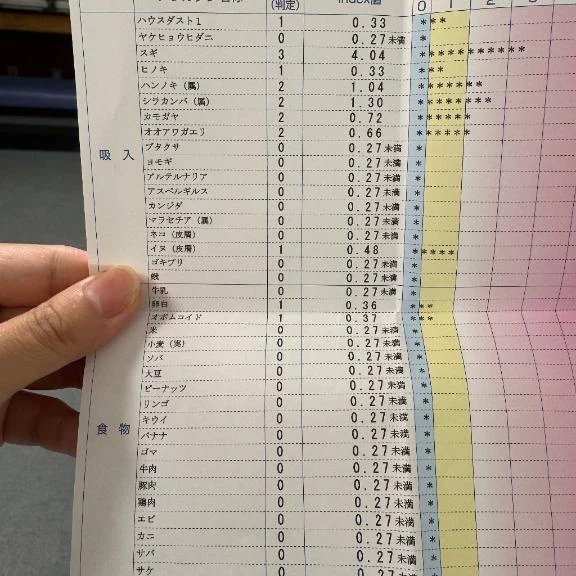 (判定) Index値 0 1 2 3
吸入
ハウスダスト1 1 0.33 ***
ヤケヒョウヒダニ 0 0.27未満 *
スギ 3 4.04 **************
ヒノキ 1 0.33 ***
ハンノキ（属） 2 1.04 *********
シラカンバ（属） 2 1.30 **********
カモガヤ 2 0.72 *******
オオアワガエリ 2 0.66 *******
ブタクサ 0 0.27未満 *
ヨモギ 0 0.27未満 *
アルテルナリア 0 0.27未満 *
アスペルギルス 0 0.27未満 *
カンジダ 0 0.27未満 *
マラセチア（属） 0 0.27未満 *
ネコ（皮屑） 0 0.27未満 *
イヌ（皮屑） 1 0.48 *****
ゴキブリ 0 0.27未満 *
蛾 0 0.27未満 *
食物
牛乳 0 0.27未満 *
卵白 1 0.36 ***
オボムコイド 1 0.37 ***
米 0 0.27未満 *
小麦（実） 0 0.27未満 *
ソバ 0 0.27未満 *
大豆 0 0.27未満 *
ピーナッツ 0 0.27未満 *
リンゴ 0 0.27未満 *
キウイ 0 0.27未満 *
バナナ 0 0.27未満 *
ゴマ 0 0.27未満 *
牛肉 0 0.27未満 *
豚肉 0 0.27未満 *
鶏肉 0 0.27未満 *
エビ 0 0.27未満 *
カニ 0 0.27未満 *
サバ 0 0.27未満 *
サケ 0 0.27未満 *